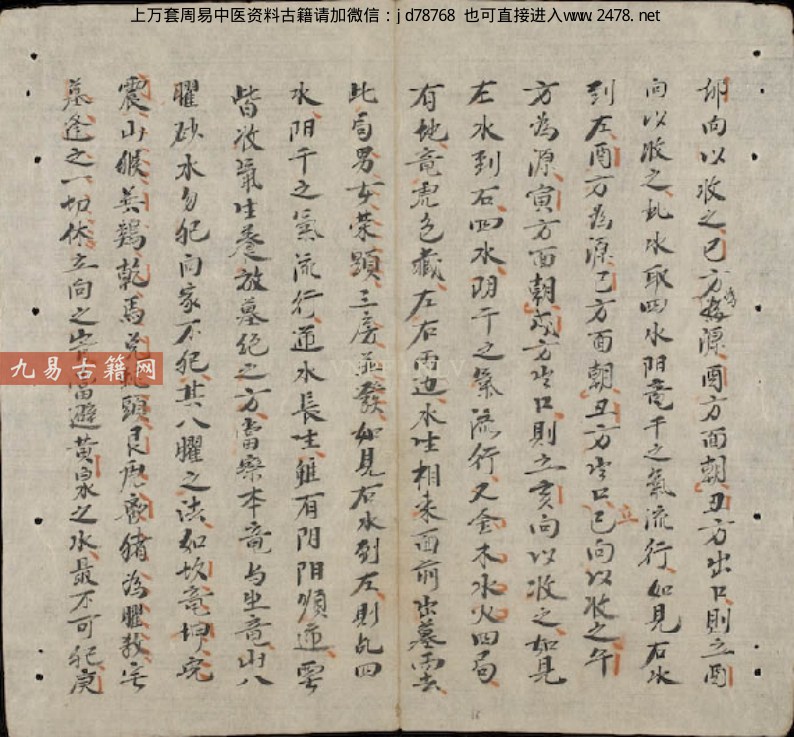 上万套周易中医资料古籍请加微信：jd78768 也可直接进入www.2478.net
卯向以收之巳方為源酉方面朝丑方出口則立酉
向以收之此水取四水阴竜干之氣流行如見右水
到左酉方為源巳方面朝丑方出口巳向以收之午
立
方為源寅方面朝戌方出口則立亥向以收之如見
左水到右四水阴干之氣流行又金木水火四局
有地竜虎包藏左右两边水生相来面前出墓雲
此局男女荣顕三房並發如見右水到左則乱四
水阴干之氣流行逆水長生雖有阴阳順逆要
皆收氣生養放墓絶之方當察本竜与坐竜山八
曜砂水勿犯向家不犯其八曜之法如坎竜坤兔
震山猴巽鷄乾馬兑蛇頭艮虎离猪為曜煞宅
墓逢之一切休立向之当避黄泉之水最不可犯庚
九易古籍网